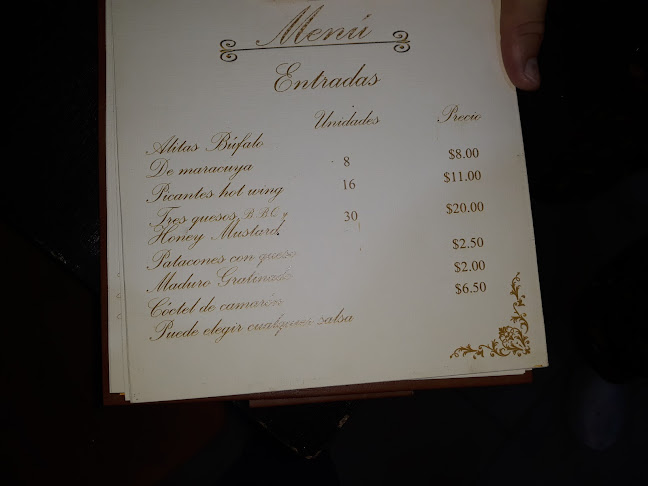 Menú
Entradas
Unidades Precio
Alitas Búfalo
De maracuya 8 $8.00
Picantes hot wing 16 $11.00
Tres quesos, B.B.Q y 30 $20.00
Honey Mustard
Patacones con queso $2.50
Maduro Gratinado $2.00
Cóctel de camarón $6.50
Puede elegir cualquier salsa